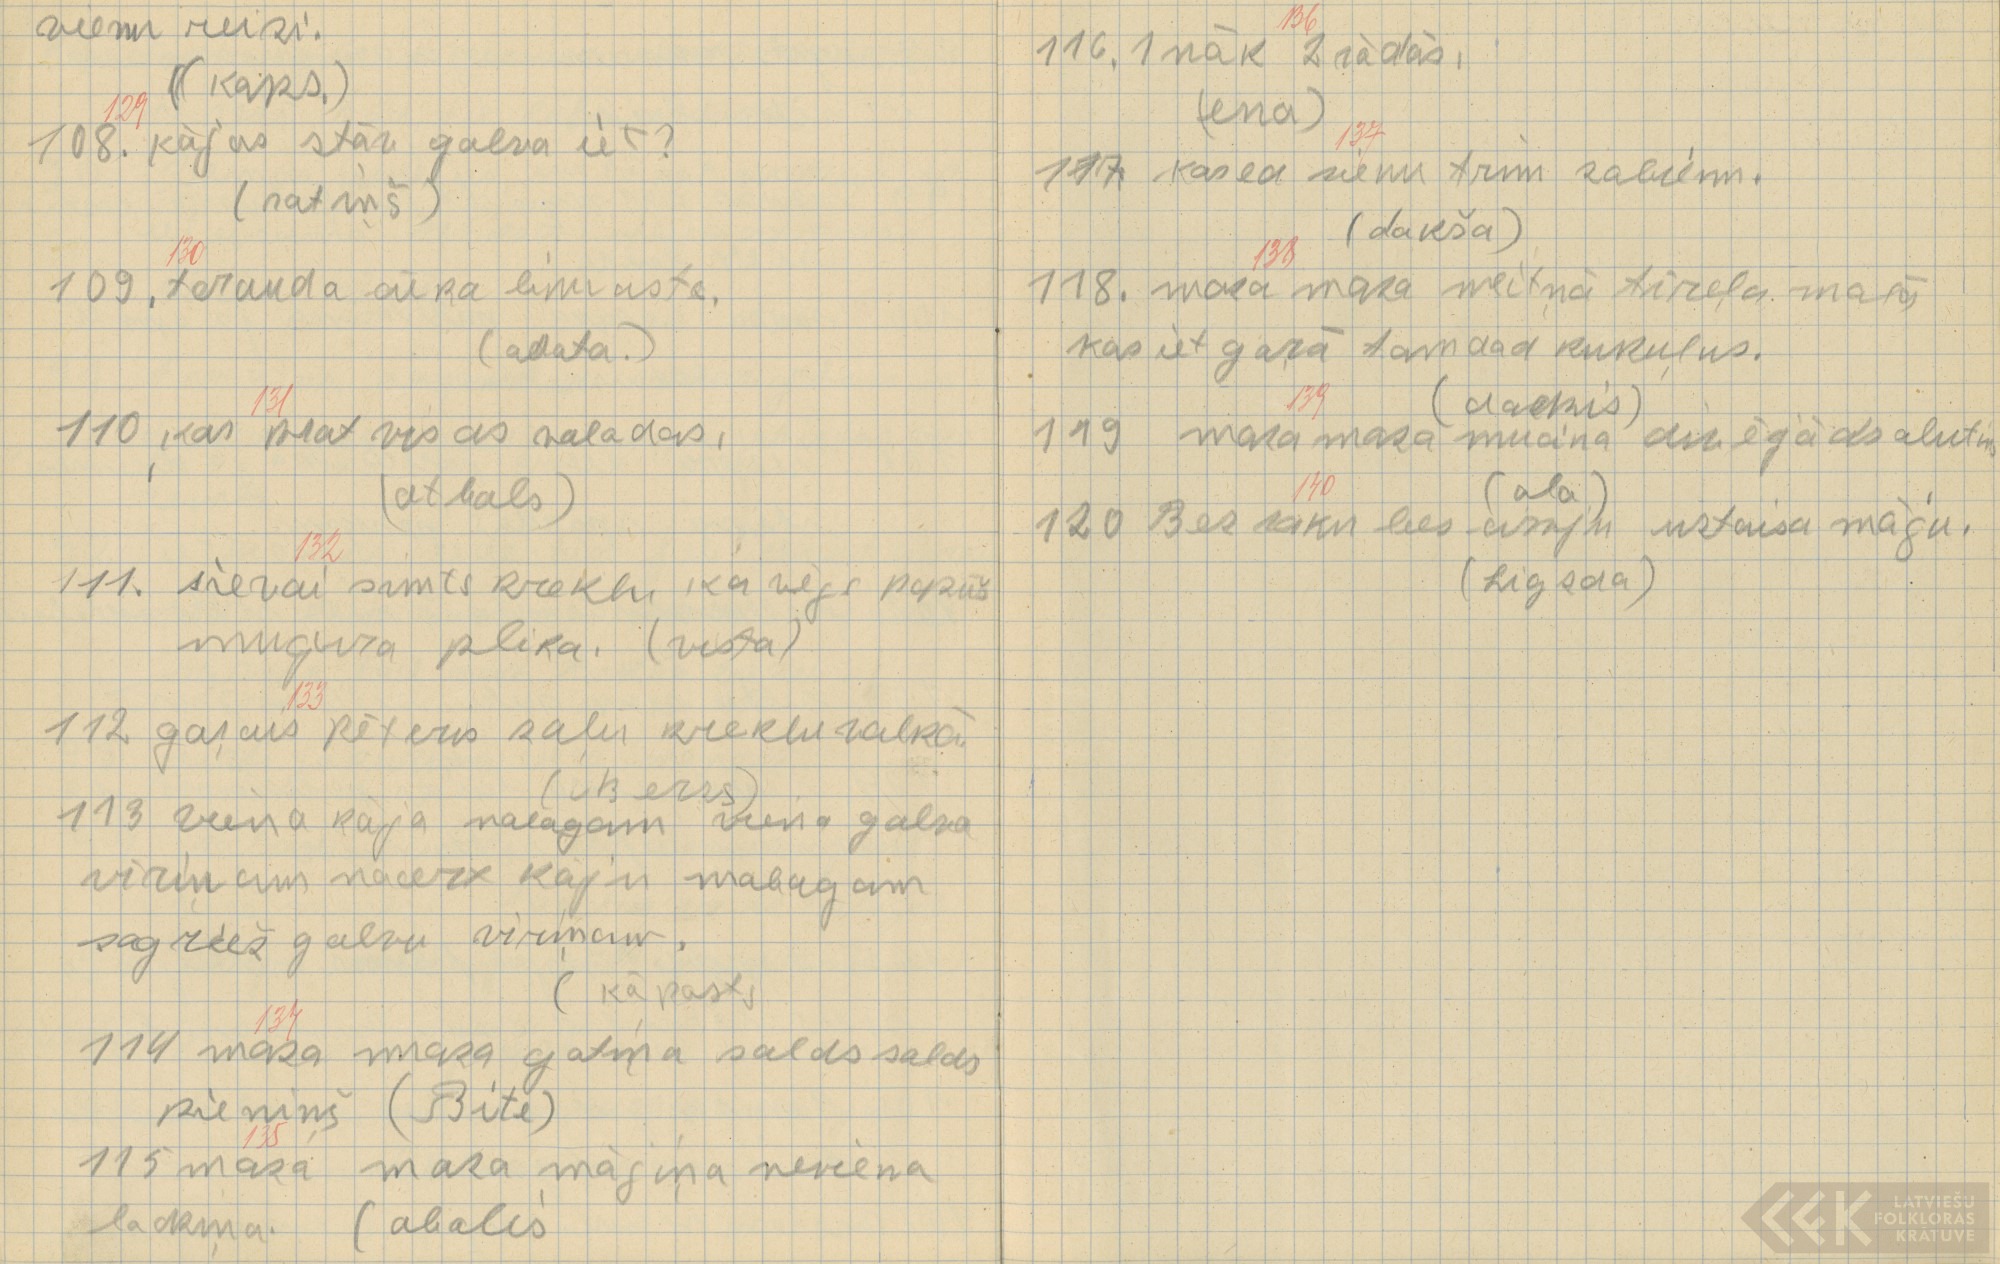 vienu reizi.
(kaps.)
129
108. kājas stāv galva iet?
(ratiņš)
130
109. tērauda cūka linu aste.
(adata.)
131
110. kas prot visas valodas.
(atbals)
132
111. sievai simts kreklu, kā vējs papūš
mugura plika. (vista)
133
112 gaŗais Pēteris zaļu kreklu valkā
(Bērzs)
113 viena kāja vaiagam viena galva
viriņam nocērt kāju
sagriež galvu viriņam.
(kāposts
134
114 maza maza gotiņa salds salds
pieniņš (Bite)
135
115 maza maza mājiņa neviena
lodziņa. (abalis
136
116. 1 nāk 2 rādās.
(ena)
137
117. kas ed sienu trim zabiem.
(dakša)
138
118. maza maza meitņa tīreļa malā
kas iet gaŗā tam dod kukuļus.
(dadzis)
139
119 maza maza muciņa divējāds alutiņš
(ola)
140
120 Bez roku bes cirvju uztaisa māju.
(Ligzda)
LATVIEŠU
FOLKLORAS
KRĀTUVE